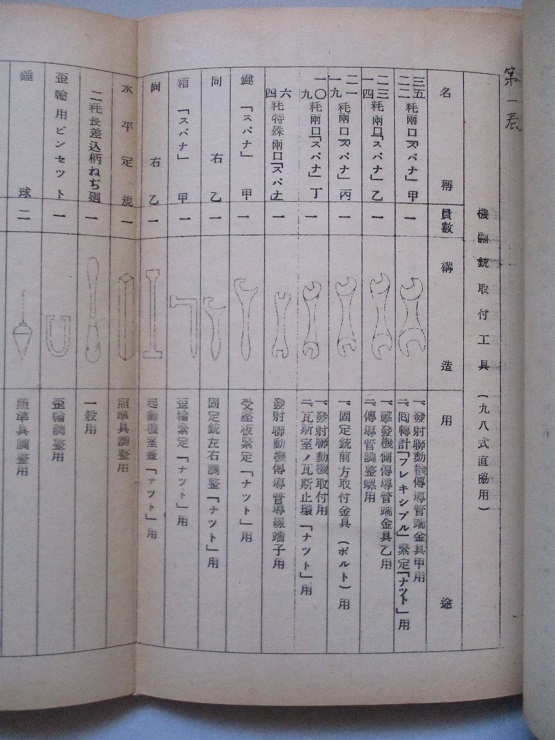 第一表
機關銃取付工具（九八式直協用）
名稱
員數
構造
用途
三五
二二 粍兩口「スパナ」甲
一
一、發射聯動機傳導管端金具甲用
二、回轉計「フレキシブル」緊定「ナツト」用
二三
一四 粍兩口「スパナ」乙
一
一、發射機側傳導管端金具乙用
二、傳導管調整螺用
二一
一九 粍兩口「スパナ」丙
一
一、固定銃前方取付金具（ボルト）用
一〇
九 粍兩口「スパナ」丁
一
一、發射聯動機取付用
二、瓦斯室ノ瓦斯止環「ナツト」用
六
四 粍特殊兩口「スパナ」
一
發射聯動機傳導管導線端子用
鍵「スパナ」甲
一
受壓板緊定「ナツト」用
同右乙
一
固定銃左右調整「ナツト」用
箱「スパナ」甲
一
歪輪緊定「ナツト」用
同右乙
一
起動機室蓋「ナツト」用
水平定規
一
照準具調整用
二粍長差込柄ねぢ廻
一
一般用
歪輪用ピンセツト
一
歪輪調整用
錘球
二
照準具調整用